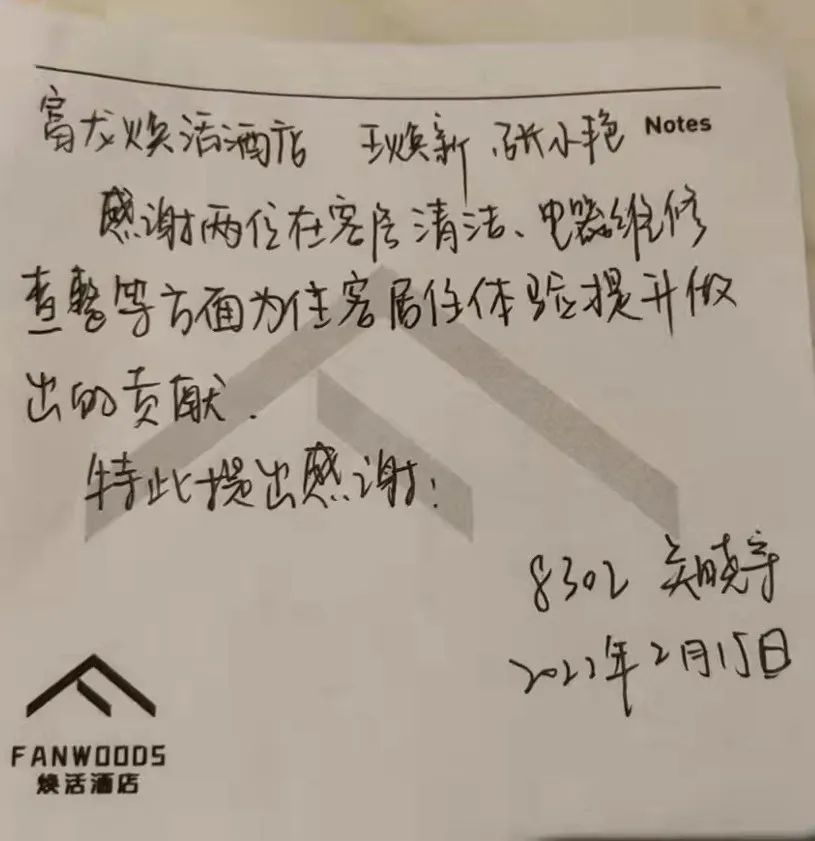 富龙焕活酒店 王焕新 张小艳 Notes
感谢两位在客房清洁、电器维修
查整等方面为住客居住体验提升做
出的贡献.
特此提出感谢!
8302 吴晓宇
2022年2月15日
FANWOODS
焕活酒店